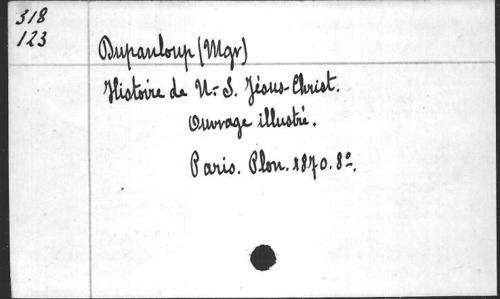 318
123
Dupanloup (Mgr)
Histoire de N.-S. Jésus-Christ.
Ouvrage illustré.
Paris. Plon. 1870. 8º.